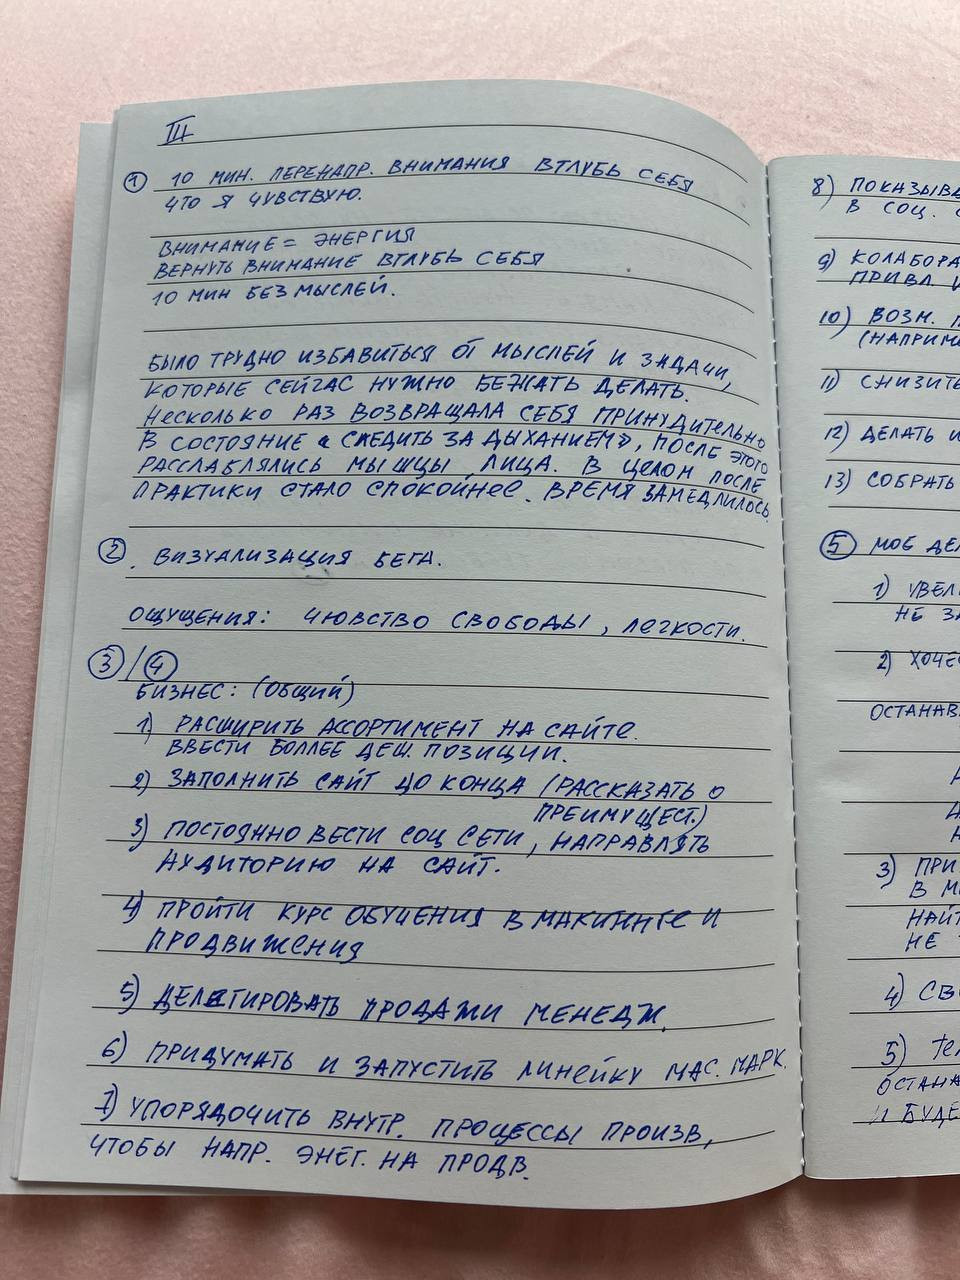 III
1 10 МИН. ПЕРЕНАПР. ВНИМАНИЯ ВГЛУБЬ СЕБЯ
ЧТО Я ЧУВСТВУЮ.
ВНИМАНИЕ = ЭНЕРГИЯ
ВЕРНУТЬ ВНИМАНИЕ ВГЛУБЬ СЕБЯ
10 МИН БЕЗ МЫСЛЕЙ.
БЫЛО ТРУДНО ИЗБАВИТЬСЯ ОТ МЫСЛЕЙ И ЗАДАЧИ,
КОТОРЫЕ СЕЙЧАС НУЖНО БЕЖАТЬ ДЕЛАТЬ.
НЕСКОЛЬКО РАЗ ВОЗВРАЩАЛА СЕБЯ ПРИНУДИТЕЛЬНО
В СОСТОЯНИЕ «СЛЕДИТЬ ЗА ДЫХАНИЕМ», ПОСЛЕ ЭТОГО
РАССЛАБЛЯЛИСЬ МЫШЦЫ ЛИЦА. В ЦЕЛОМ ПОСЛЕ
ПРАКТИКИ СТАЛО СПОКОЙНЕЕ. ВРЕМЯ ЗАМЕДЛИЛОСЬ.
2. ВИЗУАЛИЗАЦИЯ БЕГА.
ОЩУЩЕНИЯ: ЧЮВСТВО СВОБОДЫ, ЛЕГКОСТИ.
3/4
БИЗНЕС: (ОБЩИЙ)
1) РАСШИРИТЬ АССОРТИМЕНТ НА САЙТЕ.
ВВЕСТИ БОЛЛЕЕ ДЕШ. ПОЗИЦИИ.
2) ЗАПОЛНИТЬ САЙТ ДО КОНЦА (РАССКАЗАТЬ О
ПРЕИМУЩЕСТ.)
3) ПОСТОЯННО ВЕСТИ СОЦ СЕТИ, НАПРАВЛЯТЬ
АУДИТОРИЮ НА САЙТ.
4) ПРОЙТИ КУРС ОБУЧЕНИЯ В И
ПРОДВИЖЕНИЯ
5) ДЕЛЕГИРОВАТЬ ПРОДАЖИ МЕНЕДЖ.
6) ПРИДУМАТЬ И ЗАПУСТИТЬ ЛИНЕЙКУ МАС. МАРК.
7) УПОРЯДОЧИТЬ ВНУТР. ПРОЦЕССЫ ПРОИЗВ,
ЧТОБЫ НАПР. ЭНЕГ. НА ПРОДВ.
8) ПОКАЗЫВА
В СОЦ.
9) КОЛАБОРА
ПРИВЛ.
10) ВОЗМ.
(НАПРИМЕ
11) СНИЗИТЬ
12) ДЕЛАТЬ
13) СОБРАТЬ
5 МОЕ ДЕЛ
1) УВЕЛИ
НЕ ЗА
2) ХОЧЕ
ОСТАНАВ
3) ПРИ
В М
НАЙТ
НЕ
4) СВО
5)
ОСТАНА
И БУДЕ